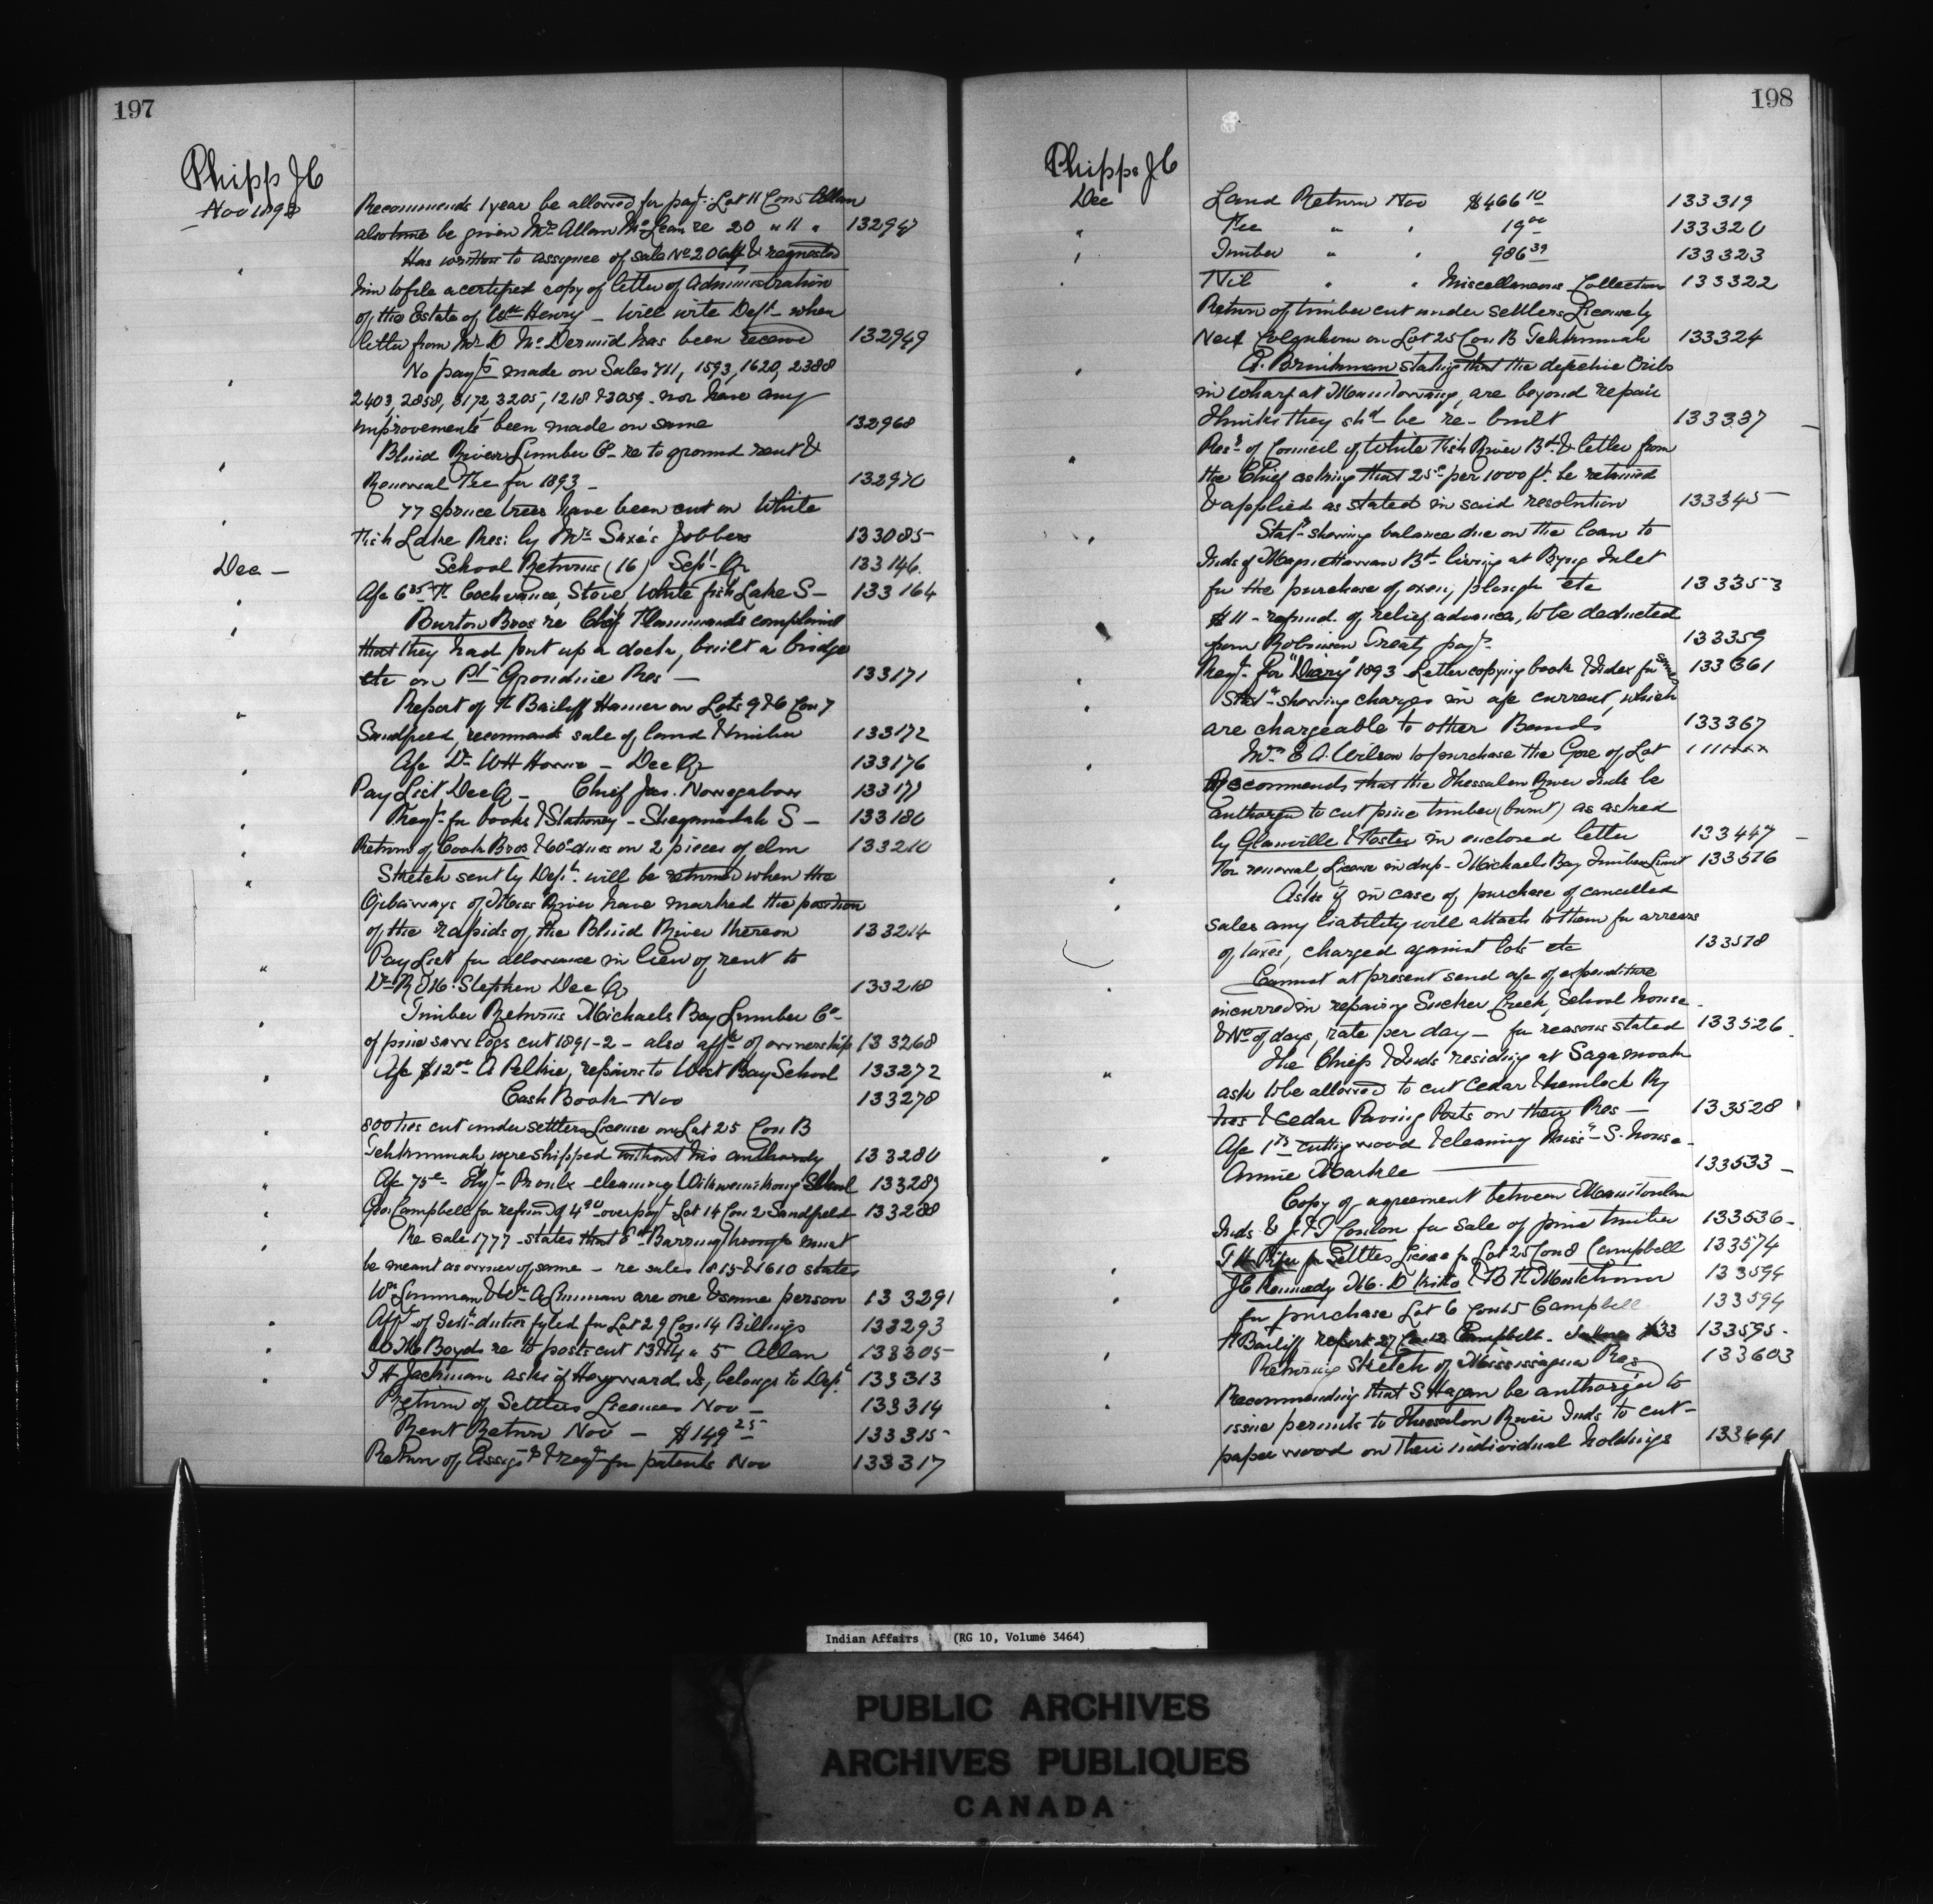 197
Phipps J C
Nov 1892
Recommends 1 year be allowed for payt Lot 11 Con 5 Allan
also time be given Mr Allan McLean re 20 " 11 " 132947
Has written to assignee of sale No 2064 & requested
him to file a certified copy of letter of Administration
of the Estate of Wm Henry - Will write Dept when
letter from Mr D McDermid has been received 132949
No payts made on Sales 711, 1593, 1620, 2388
2403, 2858, 3172, 3205, 1218 & 3059 - nor have any
improvements been made on same 132968
Blind River Lumber Co - re to ground rent &
Renewal Fee for 1893 - 132970
77 spruce trees have been cut on White
Fish Lake Res: by Mr Saxe's Jobbers 133085
Dec - School Returns (16) Sept Qr 133146
A/c 6 25 H Cochrance, Stove White fish Lake S - 133164
Burton Bros re Chief complaint
that they had put up a dock, built a bridge
etc on Pt Grondine Res - 133171
Report of H Bailiff Hamer on Lots 9 & 6 Con 7
Sandfield, recommends sale of land & timber 133172
A/c Dr W H Howie - Dec Qr 133176
Pay List Dec Q - Chief Jas. Nowegabow 133177
Reqn for books & Stationery - Shegainadah S - 133180
Return of Cook Bros & 60c dues on 2 pieces of elm 133210
Sketch sent by Dept will be returned when the
Ojibeways of Miss River have marked the position
of the rapids of the Blind River thereon 133214
Pay List for allowance in lieu of rent to
Dr R M. Stephen Dec Q 133218
Timber Returns Michaels Bay Lumber Co
of pine saw logs cut 1891-2 - also afft of ownership 133268
A/c $12 00 A Peltie, repairs to West Bay School 133272
Cash Book Nov 133278
800 ties cut under settlers License on Lot 25 Con B
Tehkummah were shipped without his authority 133280
A/c 75c Proulx cleaning Wikwemikong School 133287
Geo Campbell for refund of 4 90 overpayt Lot 14 Con 2 Sandfield 133288
Re sale 1777 - states that must
be meant as owner of same - re sales 1815 & 1610 states
Wm Linman & Wm A Linman are one & same person 133291
Afft of Sett duties fyled for Lot 29 Con 14 Billings 133293
W M Boyd re to posts cut 13 & 14 " 5 Allan 133305
T H Jackman asks if Heyward Is, belongs to Dept 133313
Return of Settlers Licenses Nov - 133314
Rent Return Nov - $149 25 133315
Return of Assigts & reqn for patents Nov 133317
198
Phipps J C
Dec Land Return Nov $466 10 133319
Fee " " 19 00 133320
Timber " " 986 39 133323
Nil " " Miscellaneous Collection 133322
Return of timber cut under settlers License by
Neil Colquhoun on Lot 25 Con B Tehkummah 133324
A. Brinkman stating that the defective Cribs
in wharf at Manitowaning, are beyond repair
thinks they shd be re-built 133337
Resn of Council of White Fish River Bd & letter from
the Chief asking that 25c per 1000 ft. be retained
& applied as stated in said resolution 133345
Statt showing balance due on the loan to
Inds of Magnettawan Bd living at Byng Inlet
for the purchase of oxen, plough etc 133353
$11 - refund of relief advances, to be deducted
from Robinson Treaty payt 133359
Reqn for "Diary" 1893 - Letter copying book & Index for same 133361
Statt showing charges in a/c current, which
are chargeable to other Bands 133367
Mrs E A. Wilson to purchase the Gore of Lot
Recommends that the Thessalon River Inds be
authorized to cut pine timber (burnt) as asked
by Glanville & Foster in enclosed letter 133447
For renewal License in dup - Michaels Bay Timber Limit 133516
Asks if in case of purchase of cancelled
sales any liability will attach to them for arrears
of taxes, charged against lots etc 133518
Cannot at present send a/c of expenditure
incurred in repairing Sucker Creek, School house
& No of days, rate per day - for reasons stated 133526
The Chief & Inds residing at Sagamook
ask to be allowed to cut Cedar & hemlock Ry
ties & Cedar Paving Posts on their Res - 133528
A/c 1 75 cutting wood & cleaning Missn S. house -
Annie Markle 133533
Copy of agreement between Manitoulin
Inds & J & T Conlon for sale of pine timber 133536
for Settlers License for Lot 25 Con 8 Campbell 133574
J C Kennedy M. D Kitto & B H Mutchmor 133594
for purchase Lot 6 Con 5 Campbell 133594
H Bailiff report 27 Con 12 Campbell. Value $33 133595
Returning Sketch of Mississagua Res 133603
Recommending that S Hagan be authorized to
issue permits to Thessalon River Inds to cut
paper wood on their individual holdings 133641
Indian Affairs (RG 10, Volume 3464)
PUBLIC ARCHIVES
ARCHIVES PUBLIQUES
CANADA